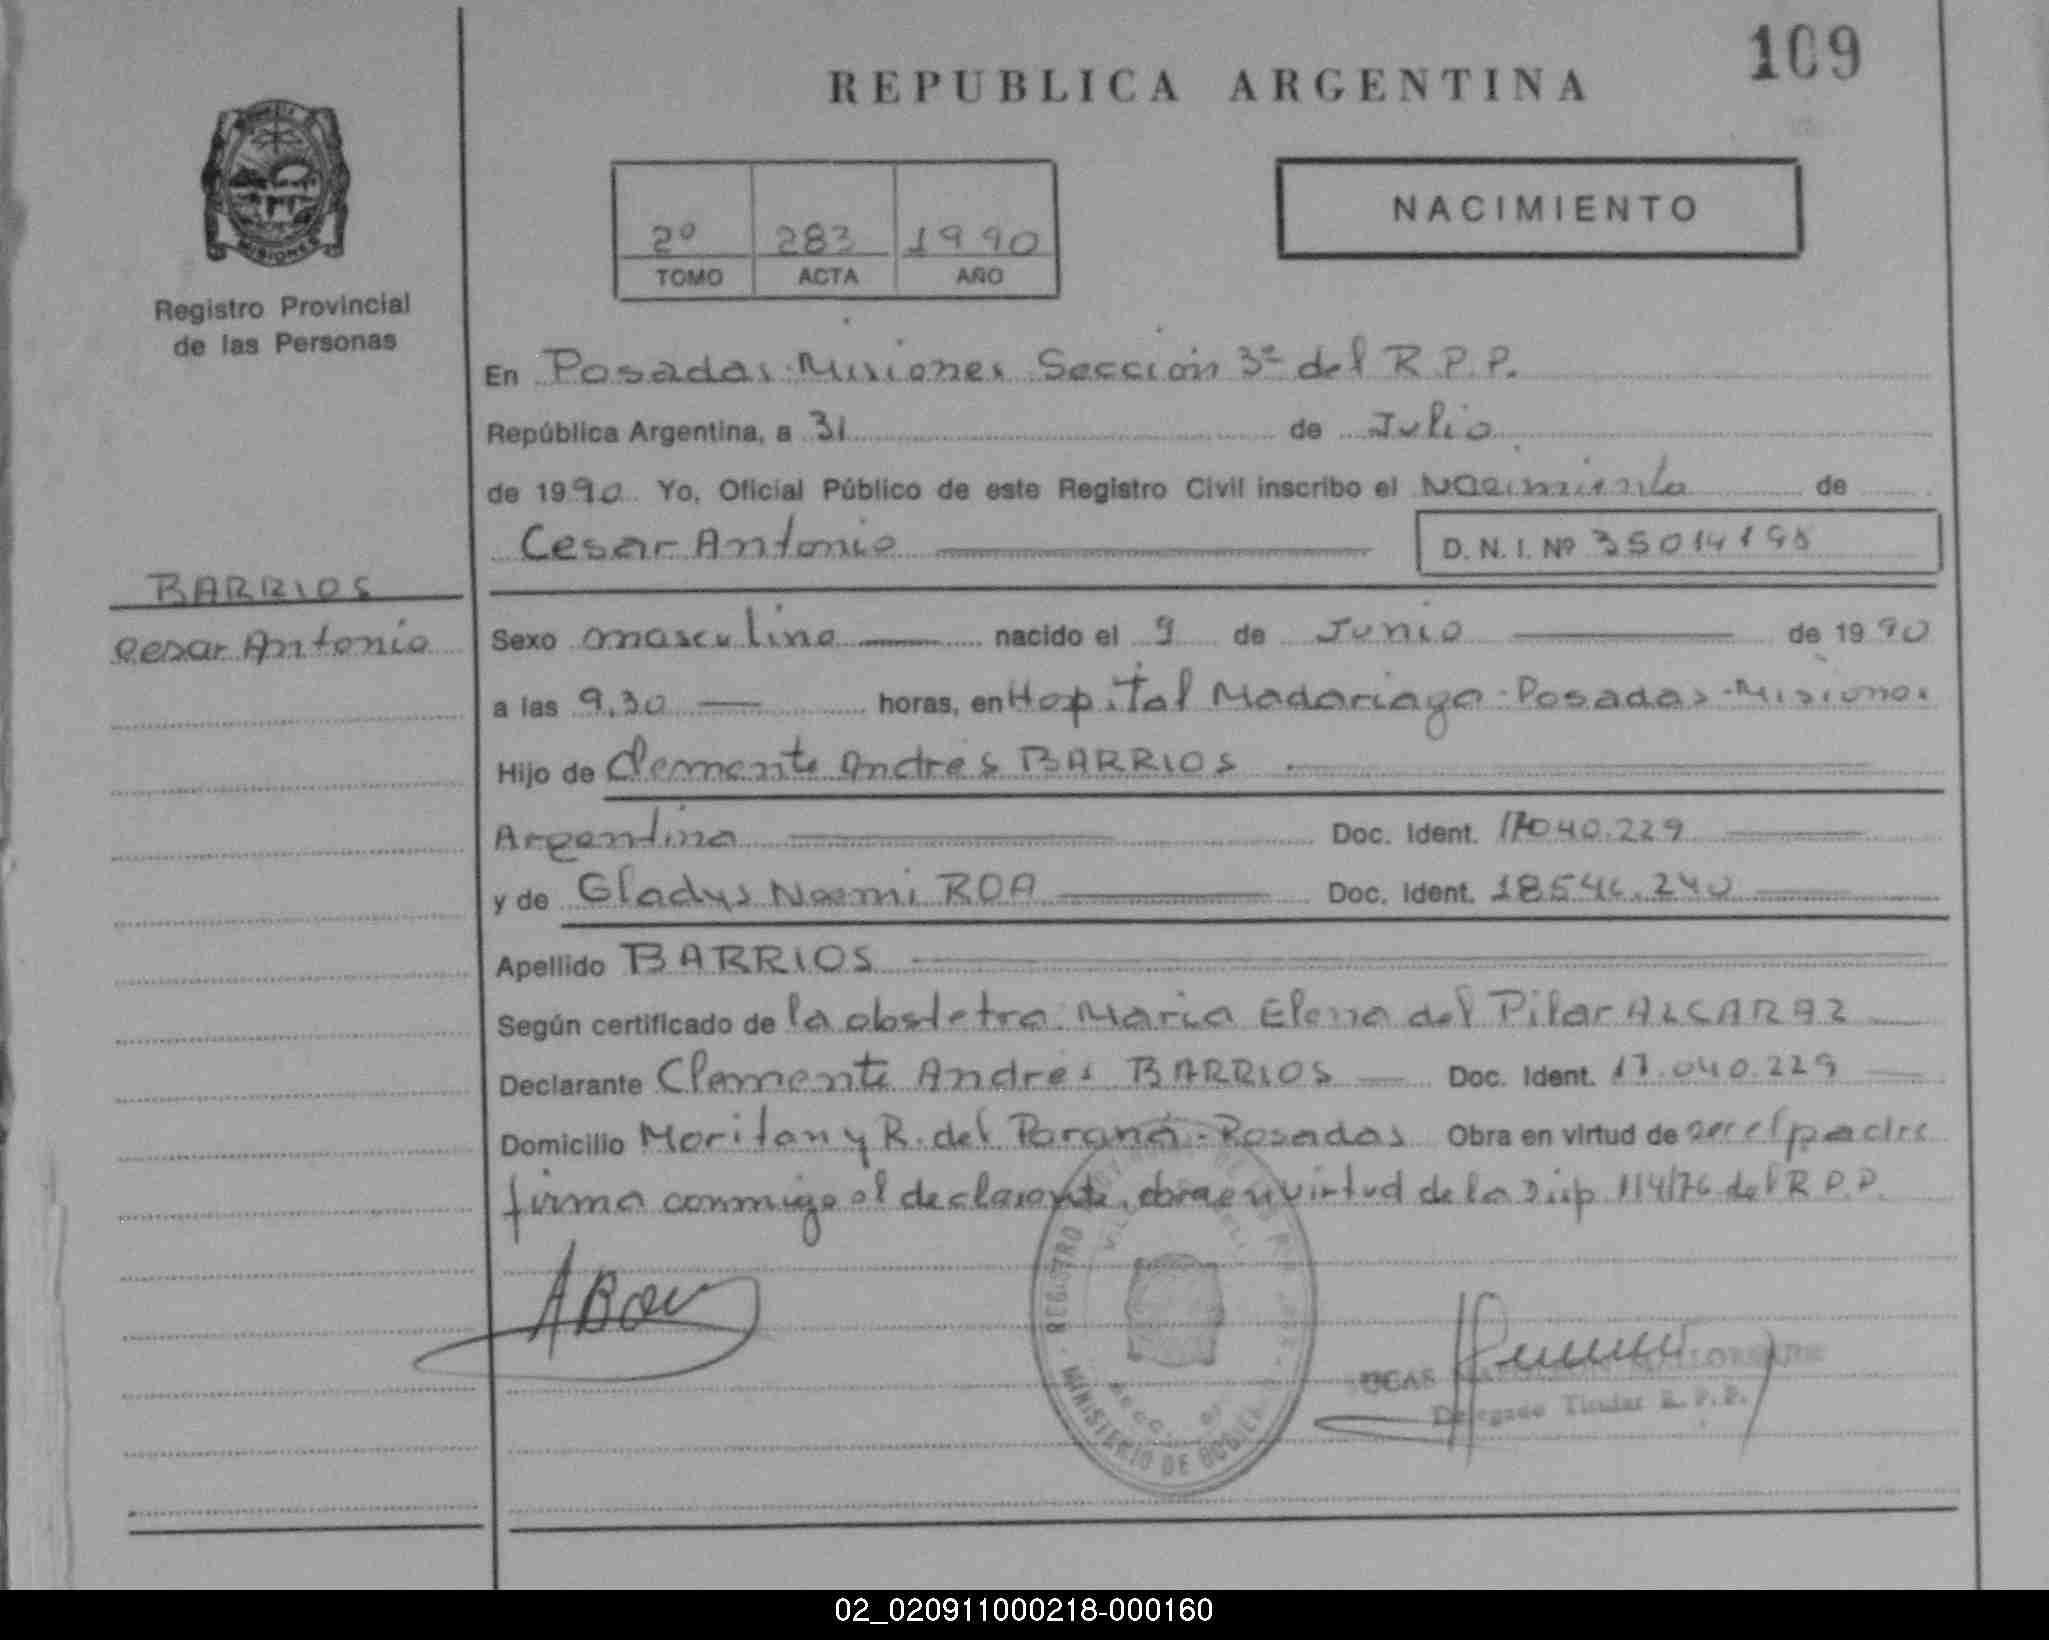 109
REPUBLICA ARGENTINA
NACIMIENTO
2º 283 1990
TOMO ACTA AÑO
MISIONES
Registro Provincial
de las Personas
En Posadas-Misiones Sección 3ª del R.P.P.
República Argentina, a 31 de Julio
de 1990 Yo, Oficial Público de este Registro Civil inscribo el Nacimiento de
Cesar Antonio D.N.I. Nº
BARRIOS
Cesar Antonio
Sexo masculino nacido el 9 de Junio de 1990
a las 9,30 horas, en Hospital Madariaga-Posadas-Misiones
Hijo de Clemente Andrés BARRIOS
Argentina Doc. Ident. 17040.229
y de Gladys Noemi ROA Doc. Ident.
Apellido BARRIOS
Según certificado de la obstetra: Maria Elena del Pilar ALCARAZ
Declarante Clemente Andrés BARRIOS Doc. Ident. 17.040.229
Domicilio Moritan y R. del Paraná-Posadas Obra en virtud de ser el padre
firma conmigo el declarante, obra en virtud de la Disp 114/76 del R.P.P.
REGISTRO
MINISTERIO DE GOBIERNO
Delegado Titular R.P.P.
02_020911000218-000160